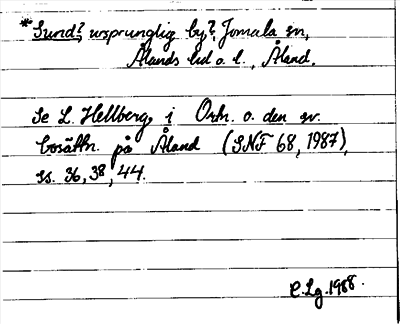 *Sund?, ursprunglig by?, Jomala sn,
Ålands lid o. l., Åland.
Se L. Hellberg, i Ortn. o. den sv.
bosättn. på Åland (SNF 68, 1987),
ss. 36, 38, 44.
C.Lg. 1988.